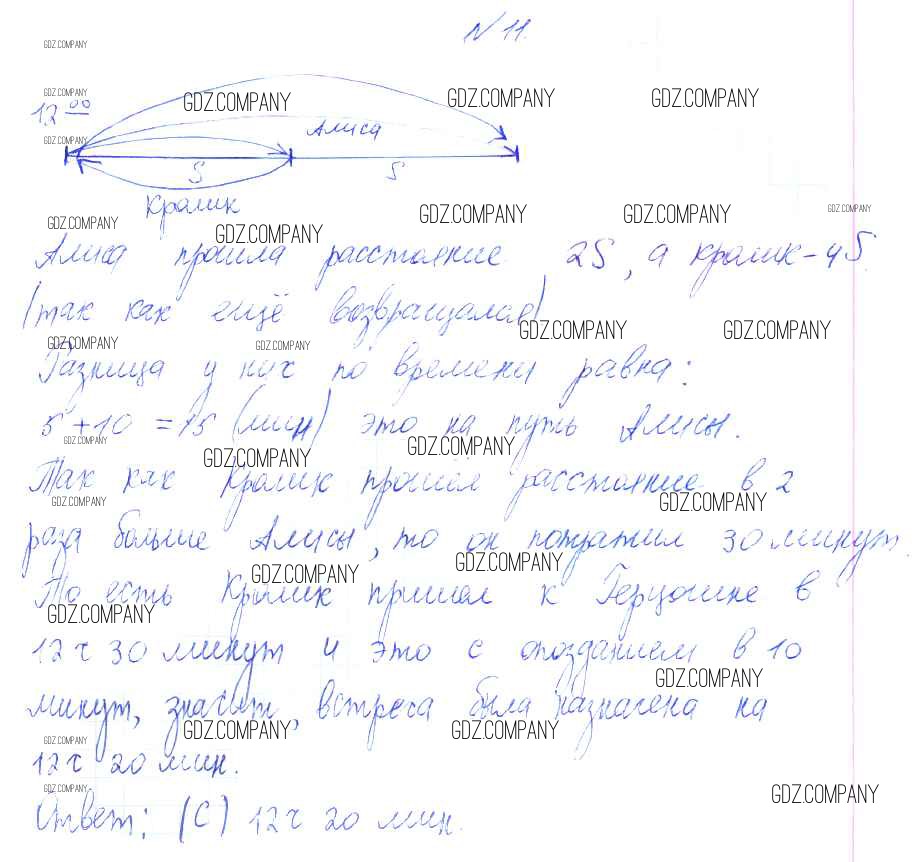 N 11.
GDZ.COMPANY
GDZ.COMPANY
12 00
GDZ.COMPANY GDZ.COMPANY GDZ.COMPANY
Алиса
GDZ.COMPANY
S S
Кролик
GDZ.COMPANY GDZ.COMPANY GDZ.COMPANY GDZ.COMPANY
GDZ.COMPANY
Алиса прошла расстояние 2S, а кролик – 4S
(так как ещё возвращался)
GDZ.COMPANY GDZ.COMPANY
GDZ.COMPANY GDZ.COMPANY
Разница у них по времени равна:
5 + 10 = 15 (мин) это на путь Алисы.
GDZ.COMPANY GDZ.COMPANY
GDZ.COMPANY
Так как Кролик прошёл расстояние в 2
GDZ.COMPANY GDZ.COMPANY
раза больше Алисы, то он потратил 30 минут.
GDZ.COMPANY GDZ.COMPANY
То есть Кролик пришел к Герцогине в
GDZ.COMPANY
12 ч 30 минут и это с опозданием в 10
GDZ.COMPANY
минут, значит, встреча была назначена на
GDZ.COMPANY GDZ.COMPANY
GDZ.COMPANY
12 ч 20 мин.
GDZ.COMPANY GDZ.COMPANY
Ответ: (С) 12 ч 20 мин.